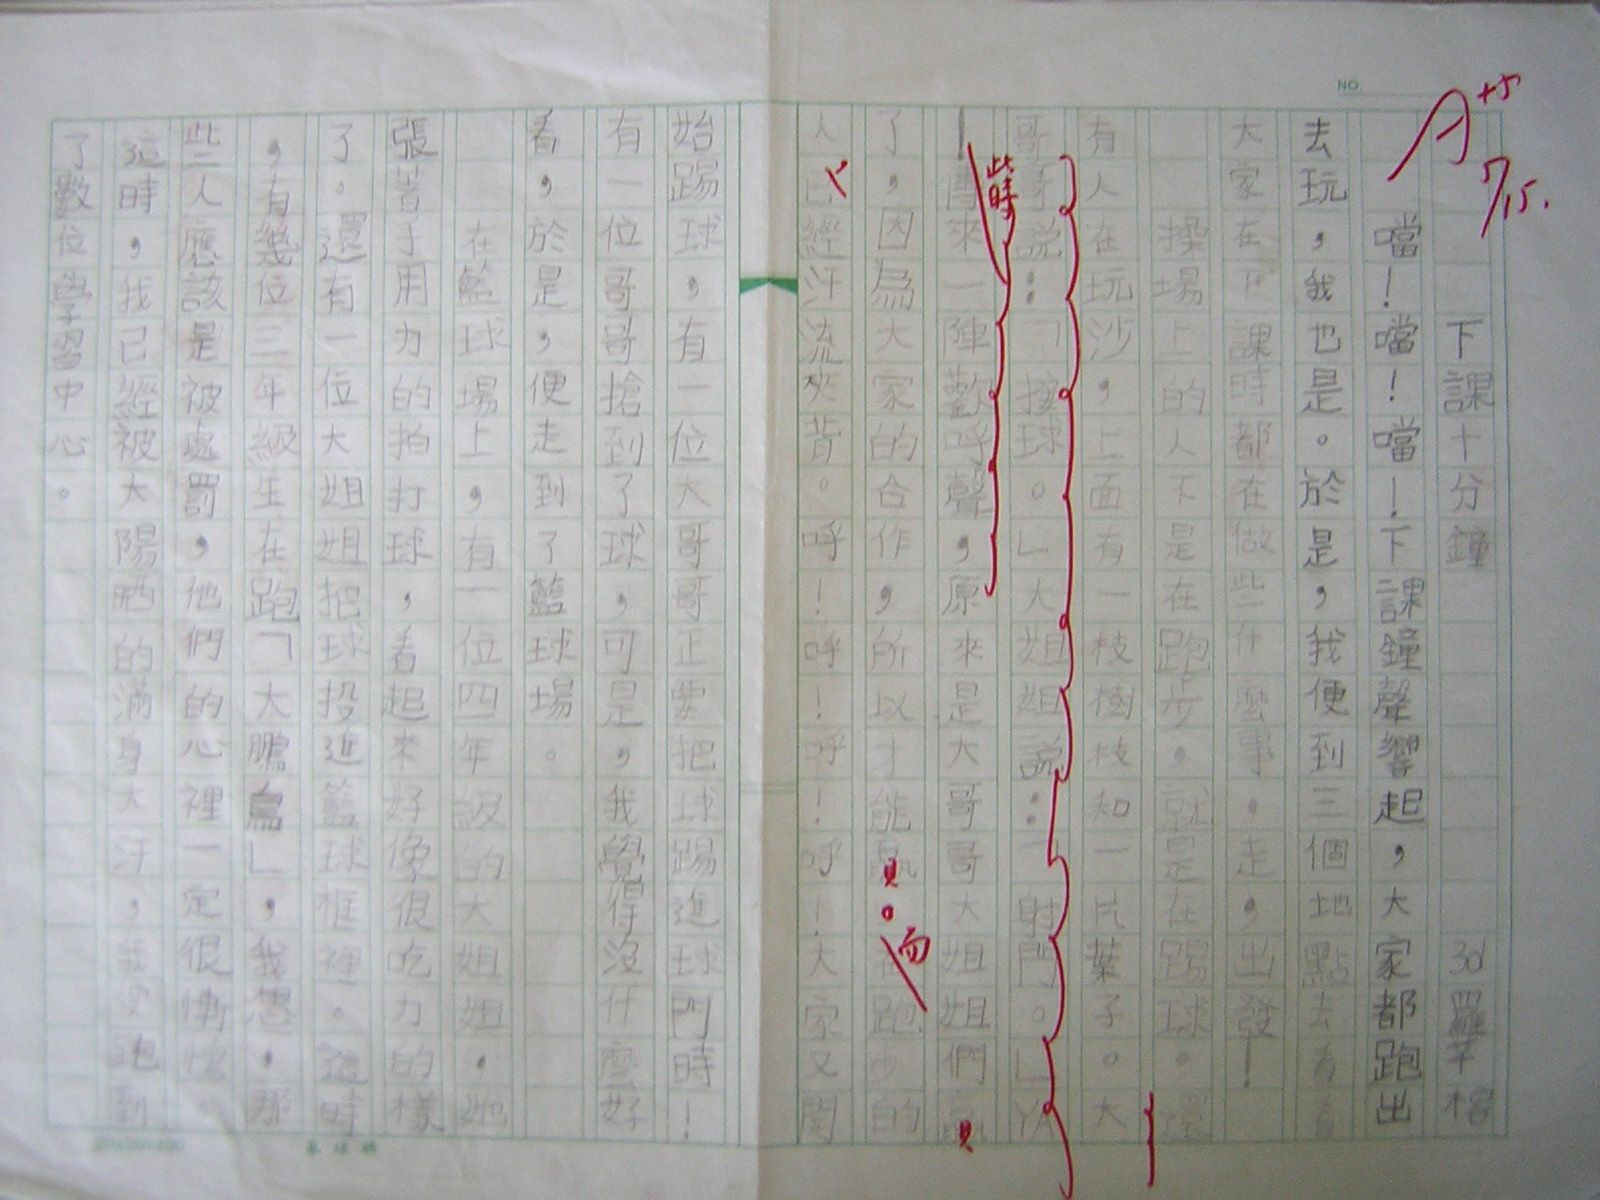 NO
A+5
7/15.
下課十分鐘 3d 羅
噹！噹！噹！下課鐘聲響起，大家都跑出
去玩，我也是。於是，我便到三個地點去看看
大家在下課時都在做些什麼事。走，出發！
操場上的人不是在跑步，就是在踢球。還
有人在玩沙，上面有一枝樹枝和一片葉子。大
哥哥說：「接球。」大姐姐說：「射門。」
來一陣歡呼聲，原來是大哥哥大姐姐們贏
此時
了，因為大家的合作，所以才能贏。在跑步的
而
人已經汗流夾背。呼！呼！呼！呼！大家又開
始踢球，有一位大哥哥正要把球踢進球門時！
有一位哥哥搶到了球，可是，我覺得沒什麼好
看，於是，便走到了籃球場。
在籃球場上，有一位四年級的大姐姐，她
張著手用力的拍打球，看起來好像很吃力的樣
了。還有一位大姐姐把球投進籃球框裡。這時
，有幾位三年級生在跑「大鵬鳥」，我想，那
些人應該是被處罰，他們的心裡一定很慚愧。
這時，我已經被太陽晒的滿身大汗，我又跑到
了數位學習中心。